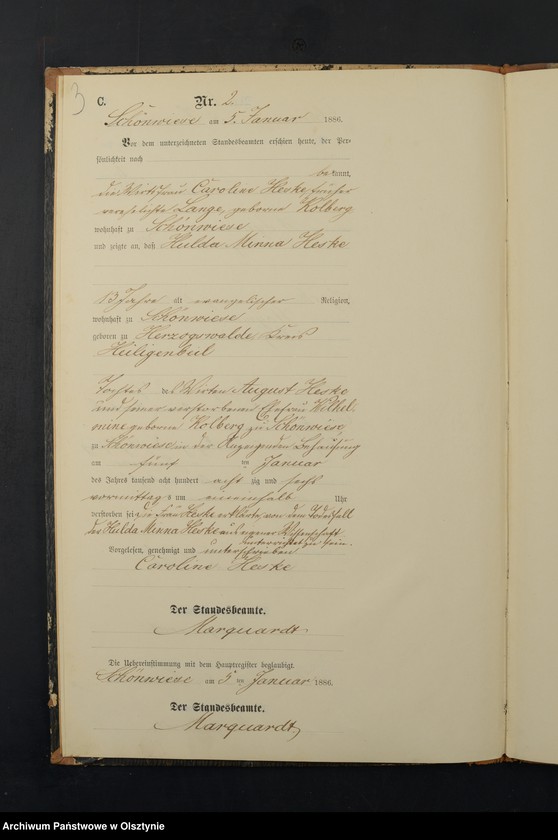 3
C. Nr. 2.
Schönwiese am 5. Januar 1886.
Vor dem unterzeichneten Standesbeamten erschien heute, der Per-
sönlichkeit nach
bekannt,
die Wirtsfrau Caroline Heske, früher
verehelichte Lange, geborne Kolberg
wohnhaft zu Schönwiese
und zeigte an, daß Hulda Minna Heske
13 Jahre alt evangelischer Religion,
wohnhaft zu Schönwiese
geboren zu Herzogswalde Kreis
Heiligenbeil
Tochter des Wirten August Heske
und seiner verstorbenen Ehefrau Wilhel-
mine geborene Kolberg zu Schönwiese,
zu Schönwiese in der Anzeigenden Behausung
am fünf ten Januar
des Jahres tausend acht hundert acht zig und sechs
vormittags um Uhr
verstorben sei, die Frau Heske erklärte, von dem Todesfall
der Hulda Minna Heske aus eigener Wissenschaft
unterrichtet zu sein.
Vorgelesen, genehmigt und unterschrieben
Caroline Heske
Der Standesbeamte.
Marquardt.
Die Uebereinstimmung mit dem Hauptregister beglaubigt.
Schönwiese am 5 ten Januar 1886.
Der Standesbeamte.
Marquardt
Archiwum Państwowe w Olsztynie